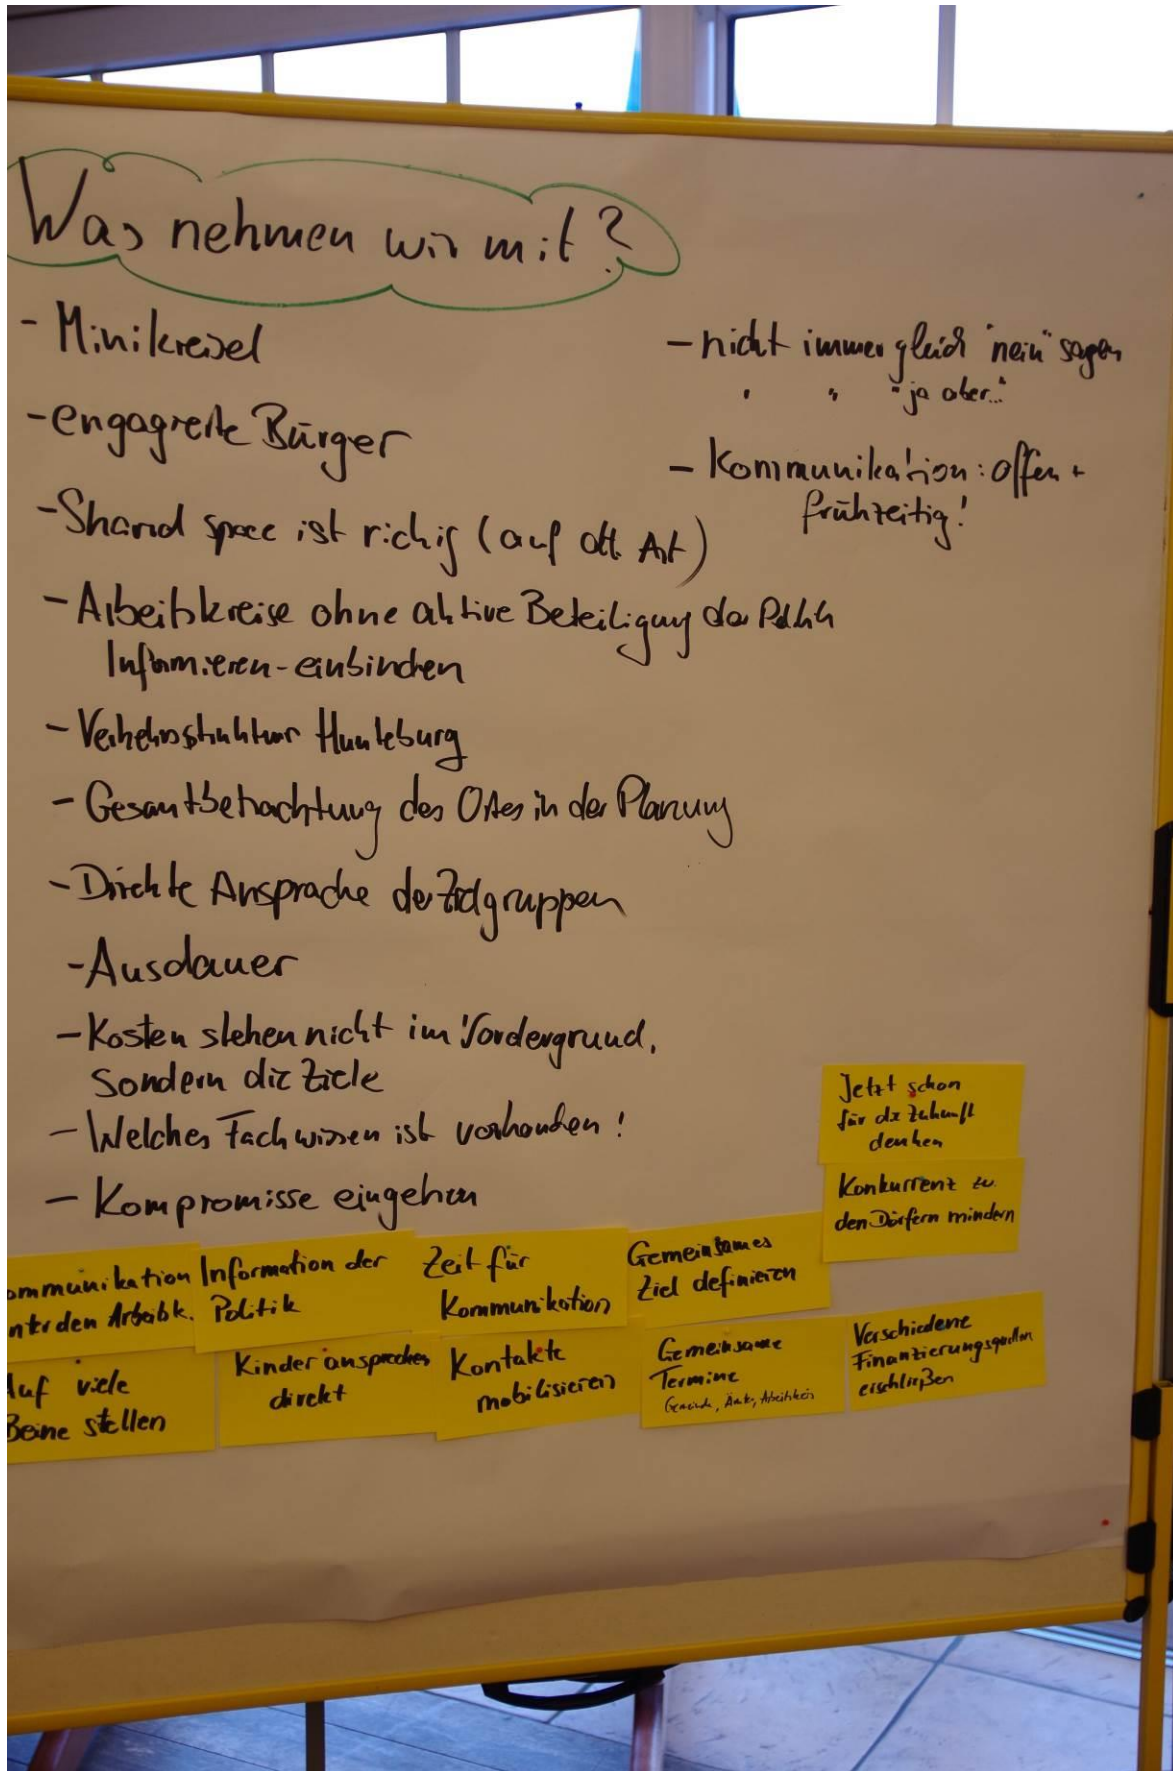 Was nehmen wir mit?
- Minikreisel
- engagierte Bürger
- Shared space ist richig (auf ott. Art)
- Arbeitskreise ohne aktive Beteiligung der Politik
Informieren - einbinden
- Verkehrsstruktur Hunteburg
- Gesamtbetrachtung des Ortes in der Planung
- Direkte Ansprache der Zielgruppen
- Ausdauer
- Kosten stehen nicht im Vordergrund,
sondern die Ziele
- Welches Fachwissen ist vorhanden!
- Kompromisse eingehen
- nicht immer gleich "nein" sagen
" " "ja aber..."
- Kommunikation: offen +
frühzeitig!
Jetzt schon
für die Zukunft
denken
Konkurrenz zu
den Dörfern mindern
ommunikation
nter den Arbeitsk.
Information der
Politik
Zeit für
Kommunikation
Gemeinsames
Ziel definieren
Auf viele
Beine stellen
Kinder ansprechen
direkt
Kontakte
mobilisieren
Gemeinsame
Termine
Gemeinde, Ämter,
Verschiedene
Finanzierungsquellen
erschließen